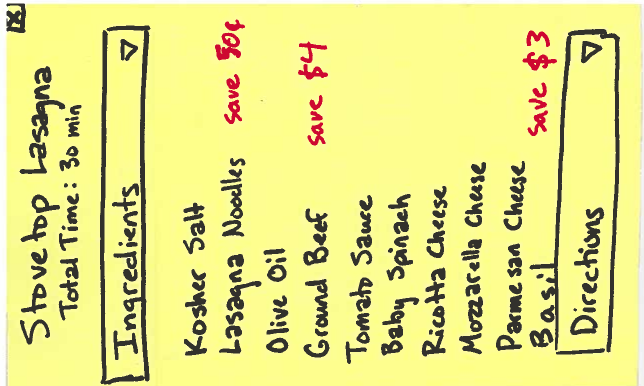 X
Stovetop Lasagna
Total Time: 30 min
Ingredients
Kosher Salt
Lasagna Noodles save 50¢
Olive Oil
Ground Beef save $4
Tomato Sauce
Baby Spinach
Ricotta Cheese
Mozzarella Cheese
Parmesan Cheese
Basil save $3
Directions